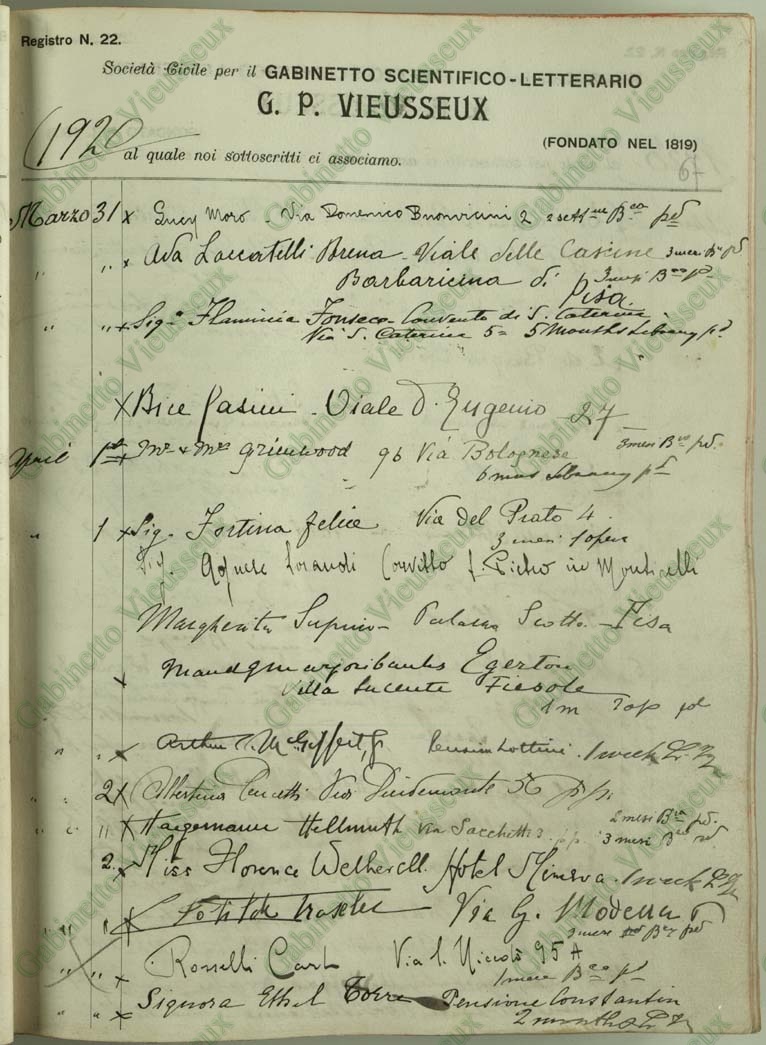 Registro N. 22.
Società Civile per il GABINETTO SCIENTIFICO-LETTERARIO
G. P. VIEUSSEUX
(FONDATO NEL 1819)
1920
al quale noi sottoscritti ci associamo.
67
Marzo 31 x Lucy Moro - Via Domenico Buonvicini 2 2 sett.ne B.ca pd
" " x Ada Laccatelli Brena - Viale delle Cascine 3 mesi B.ca pd
Barbaricina di Pisa 3 mesi B.ca pd
" " x Sig.a Flaminia Fonseca - Convento di S. Caterina
Via S. Caterina 5 = 5 Months Library pd
x Bice Pasini - Viale D. Eugenio 27
3 mesi B.ca pd.
Aprile 1st x Mr & Mrs Greenwood 96 Via Bolognese
6 mos Library pd
" 1 x Sig. Fortina Felice Via del Prato 4.
3 mesi 1 opera
Sig. Agnese Lorandi Convitto S. Pietro in Monticelli
Margherita Supino - Palazzo Scotto - Pisa
x Maud Marjoribanks Egerton
Villa Lucente Fiesole
1 m pd
" " x Arthur C. McGiffert, Jr Pension Lottini. 1 week
2 x Albertina Via Pindemonte
" " x Haegemann Hellmuth Via Sacchetti 3. 2 mesi B.ca pd.
3 mesi B.ca pd
2. x Miss Florence Wetherell. Hotel Minerva. 1 week
" x Via G. Modena
3 mesi B.ca pd
" " x Rosselli Carlo Via S. Niccolò 95 A
1 mese B.ca pd
" " x Signora Ethel Torre Pensione Constantin
2 months
Gabinetto Vieusseux